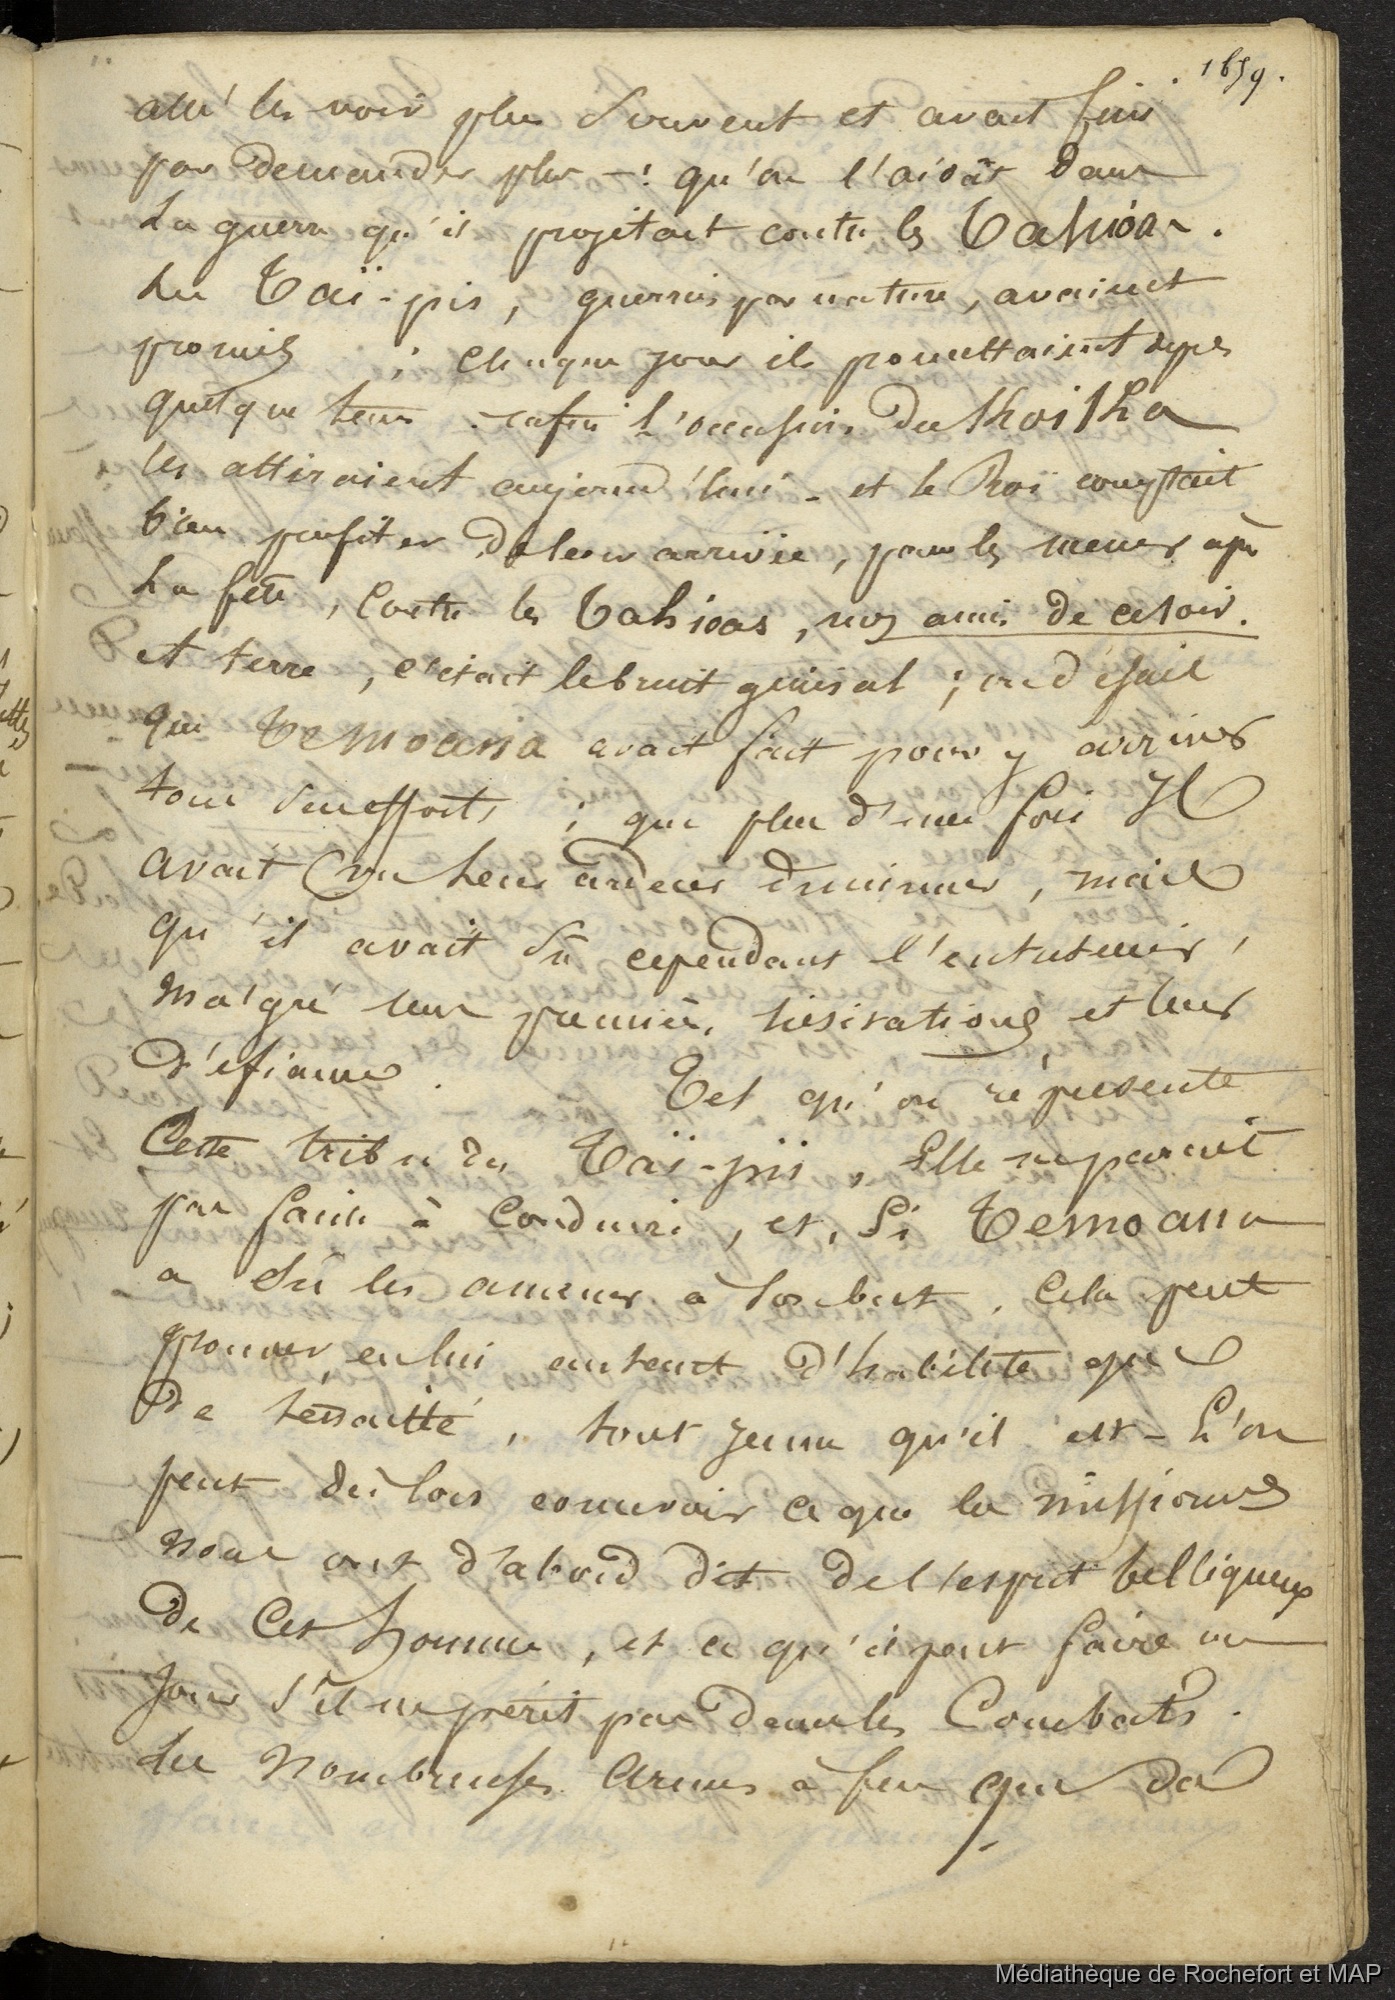 1659.
allé les voir plus souvent et avait fini
par demander plus -: qu'on l'aidât dans
La guerre qu'il projetait contre les Tahioas.
Les Taï-pis, guerriers par nature, avaient
promis ; chaque jour ils promettaient depuis
quelque tems. enfin l'occasion du Khoïkha
les attiraient aujourd'hui - et le Roi comptait
bien profiter de leur arrivée, pour les mener après
La fête, contre les Tahioas, nos amis de ce soir.
A terre, c'était le bruit général ; on disait
que Temoana avait fait pour y arriver
tous ses efforts ; que plus d'une fois Il
avait vu leur ardeur diminuer, mais
qu'il avait sû cependant l'entretenir,
malgré leurs premières hésitations et leur
défiance. Tel qu'on représente
Cette tribu des Taï-piis, Elle ne parait
pas facile à Conduire, et, Si Temoana
a sû les amener à son but, Cela peut
prouver en lui autant d'habileté que
De ténacité, tout jeune qu'il est - L'on
peut dès lors concevoir ce que les missions
nous ont d'abord dit de l'esprit belliqueux
De Cet homme, et ce qu'il peut faire un
Jour s'il ne périt pas dans les Combats.
Les Nombreuses Armes à feu que de
Médiathèque de Rochefort et MAP